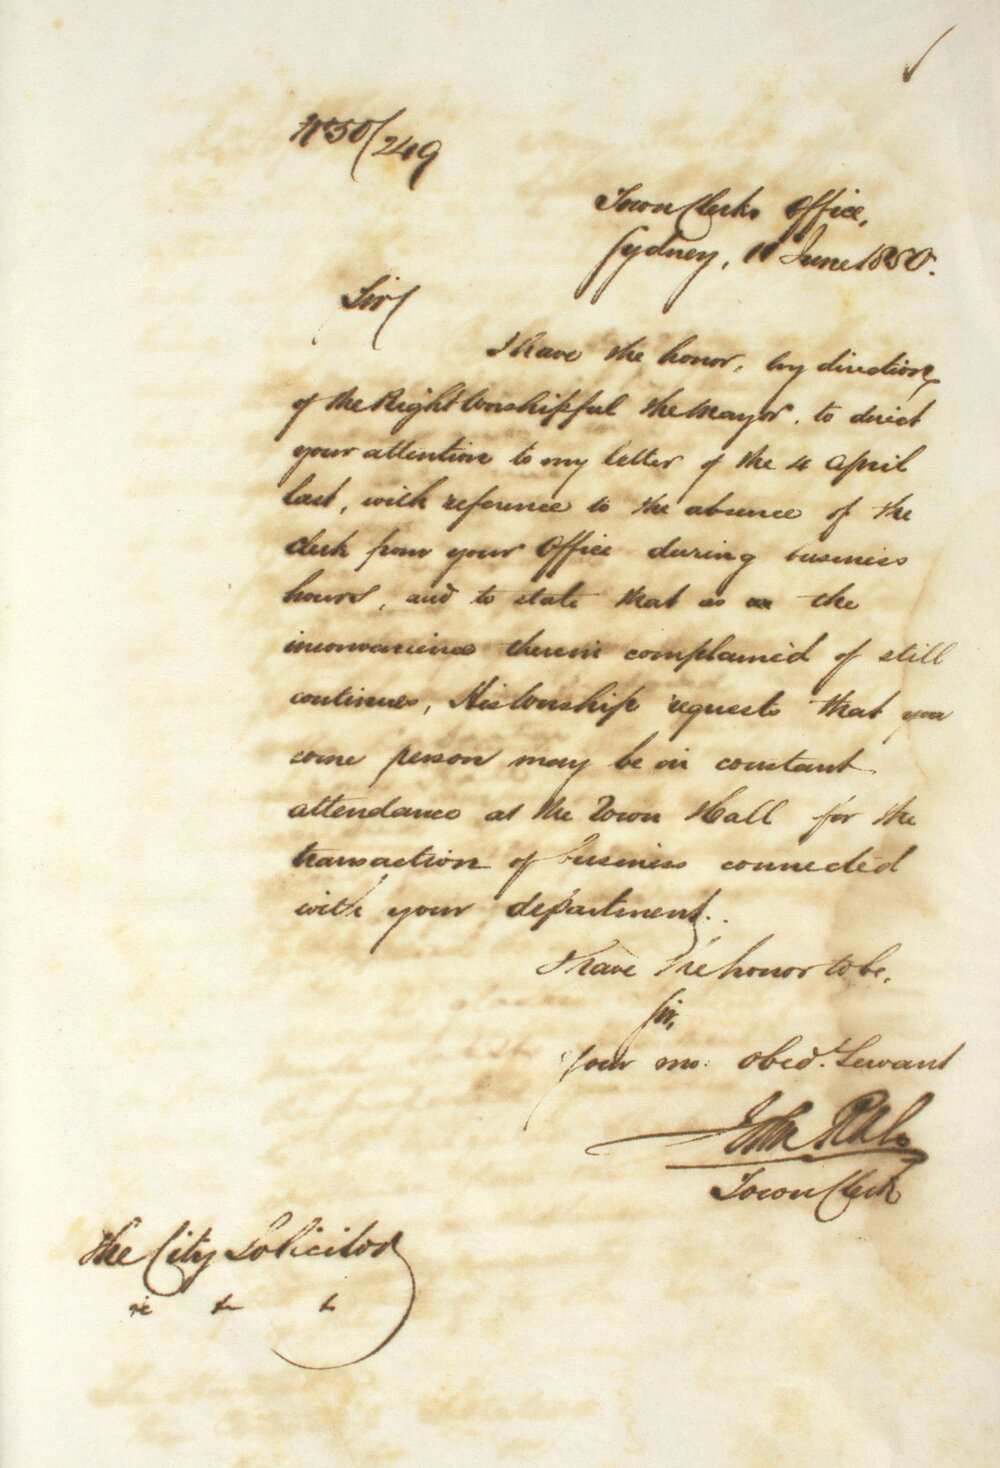 No 50/249
Town Clerks Office,
Sydney, 11 June 1850.
Sir
I have the honor, by direction,
of the Right Worshipful the Mayor, to direct
your attention to my letter of the 4 April
last, with reference to the absence of the
clerk from your Office during business
hours, and to state that as the
inconvenience therein complained of still
continues, His Worship requests that you
some person may be in constant
attendance at the Town Hall for the
transaction of business connected
with your department.
I have the honor to be,
Sir,
Your mo: obed. Servant
John
Town Clerk
The City Solicitor